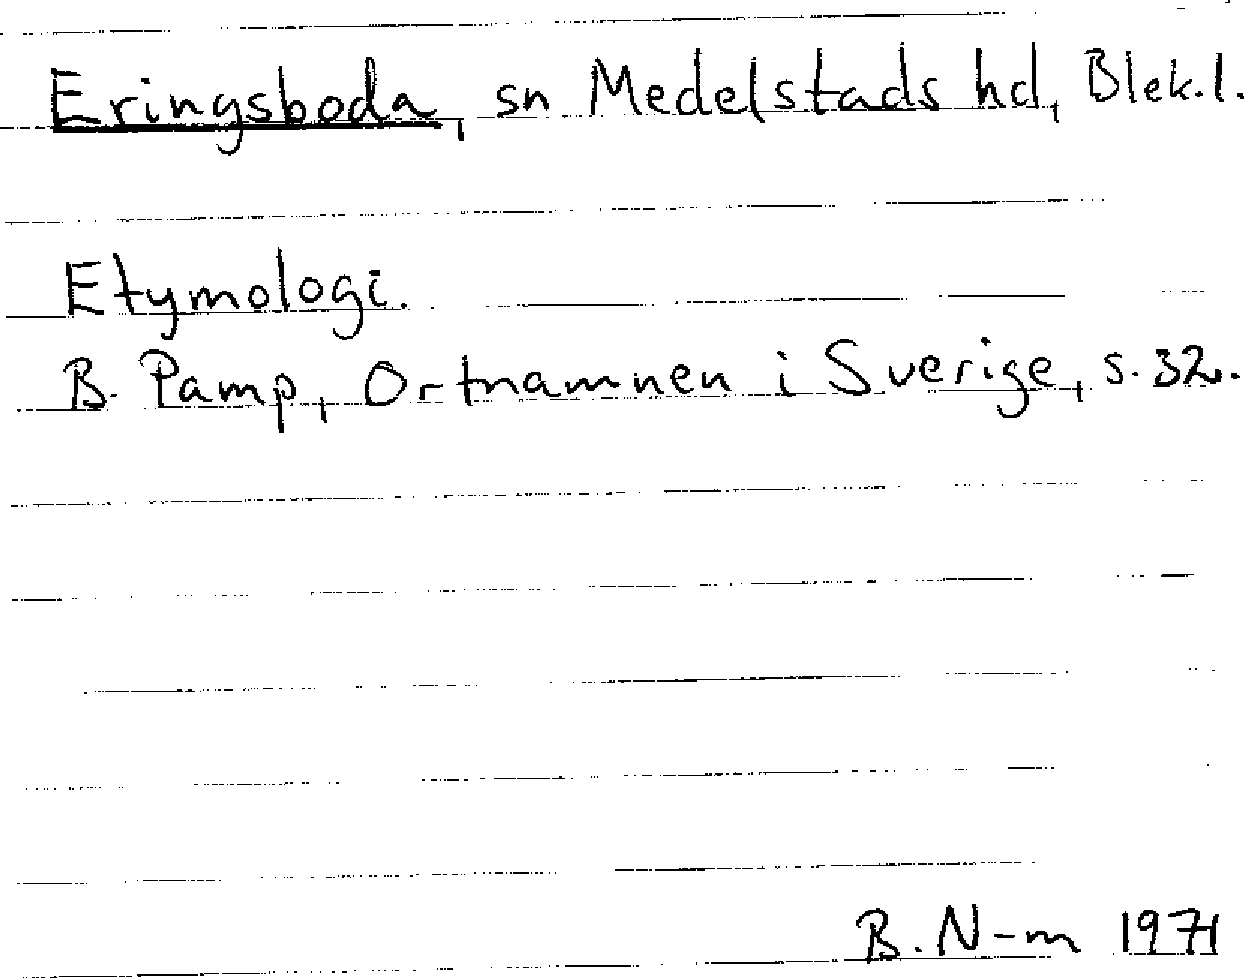 Eringsboda, sn Medelstads hd, Blek.l.
Etymologi.
B. Pamp, Ortnamnen i Sverige, s. 32.
B. N-m 1971